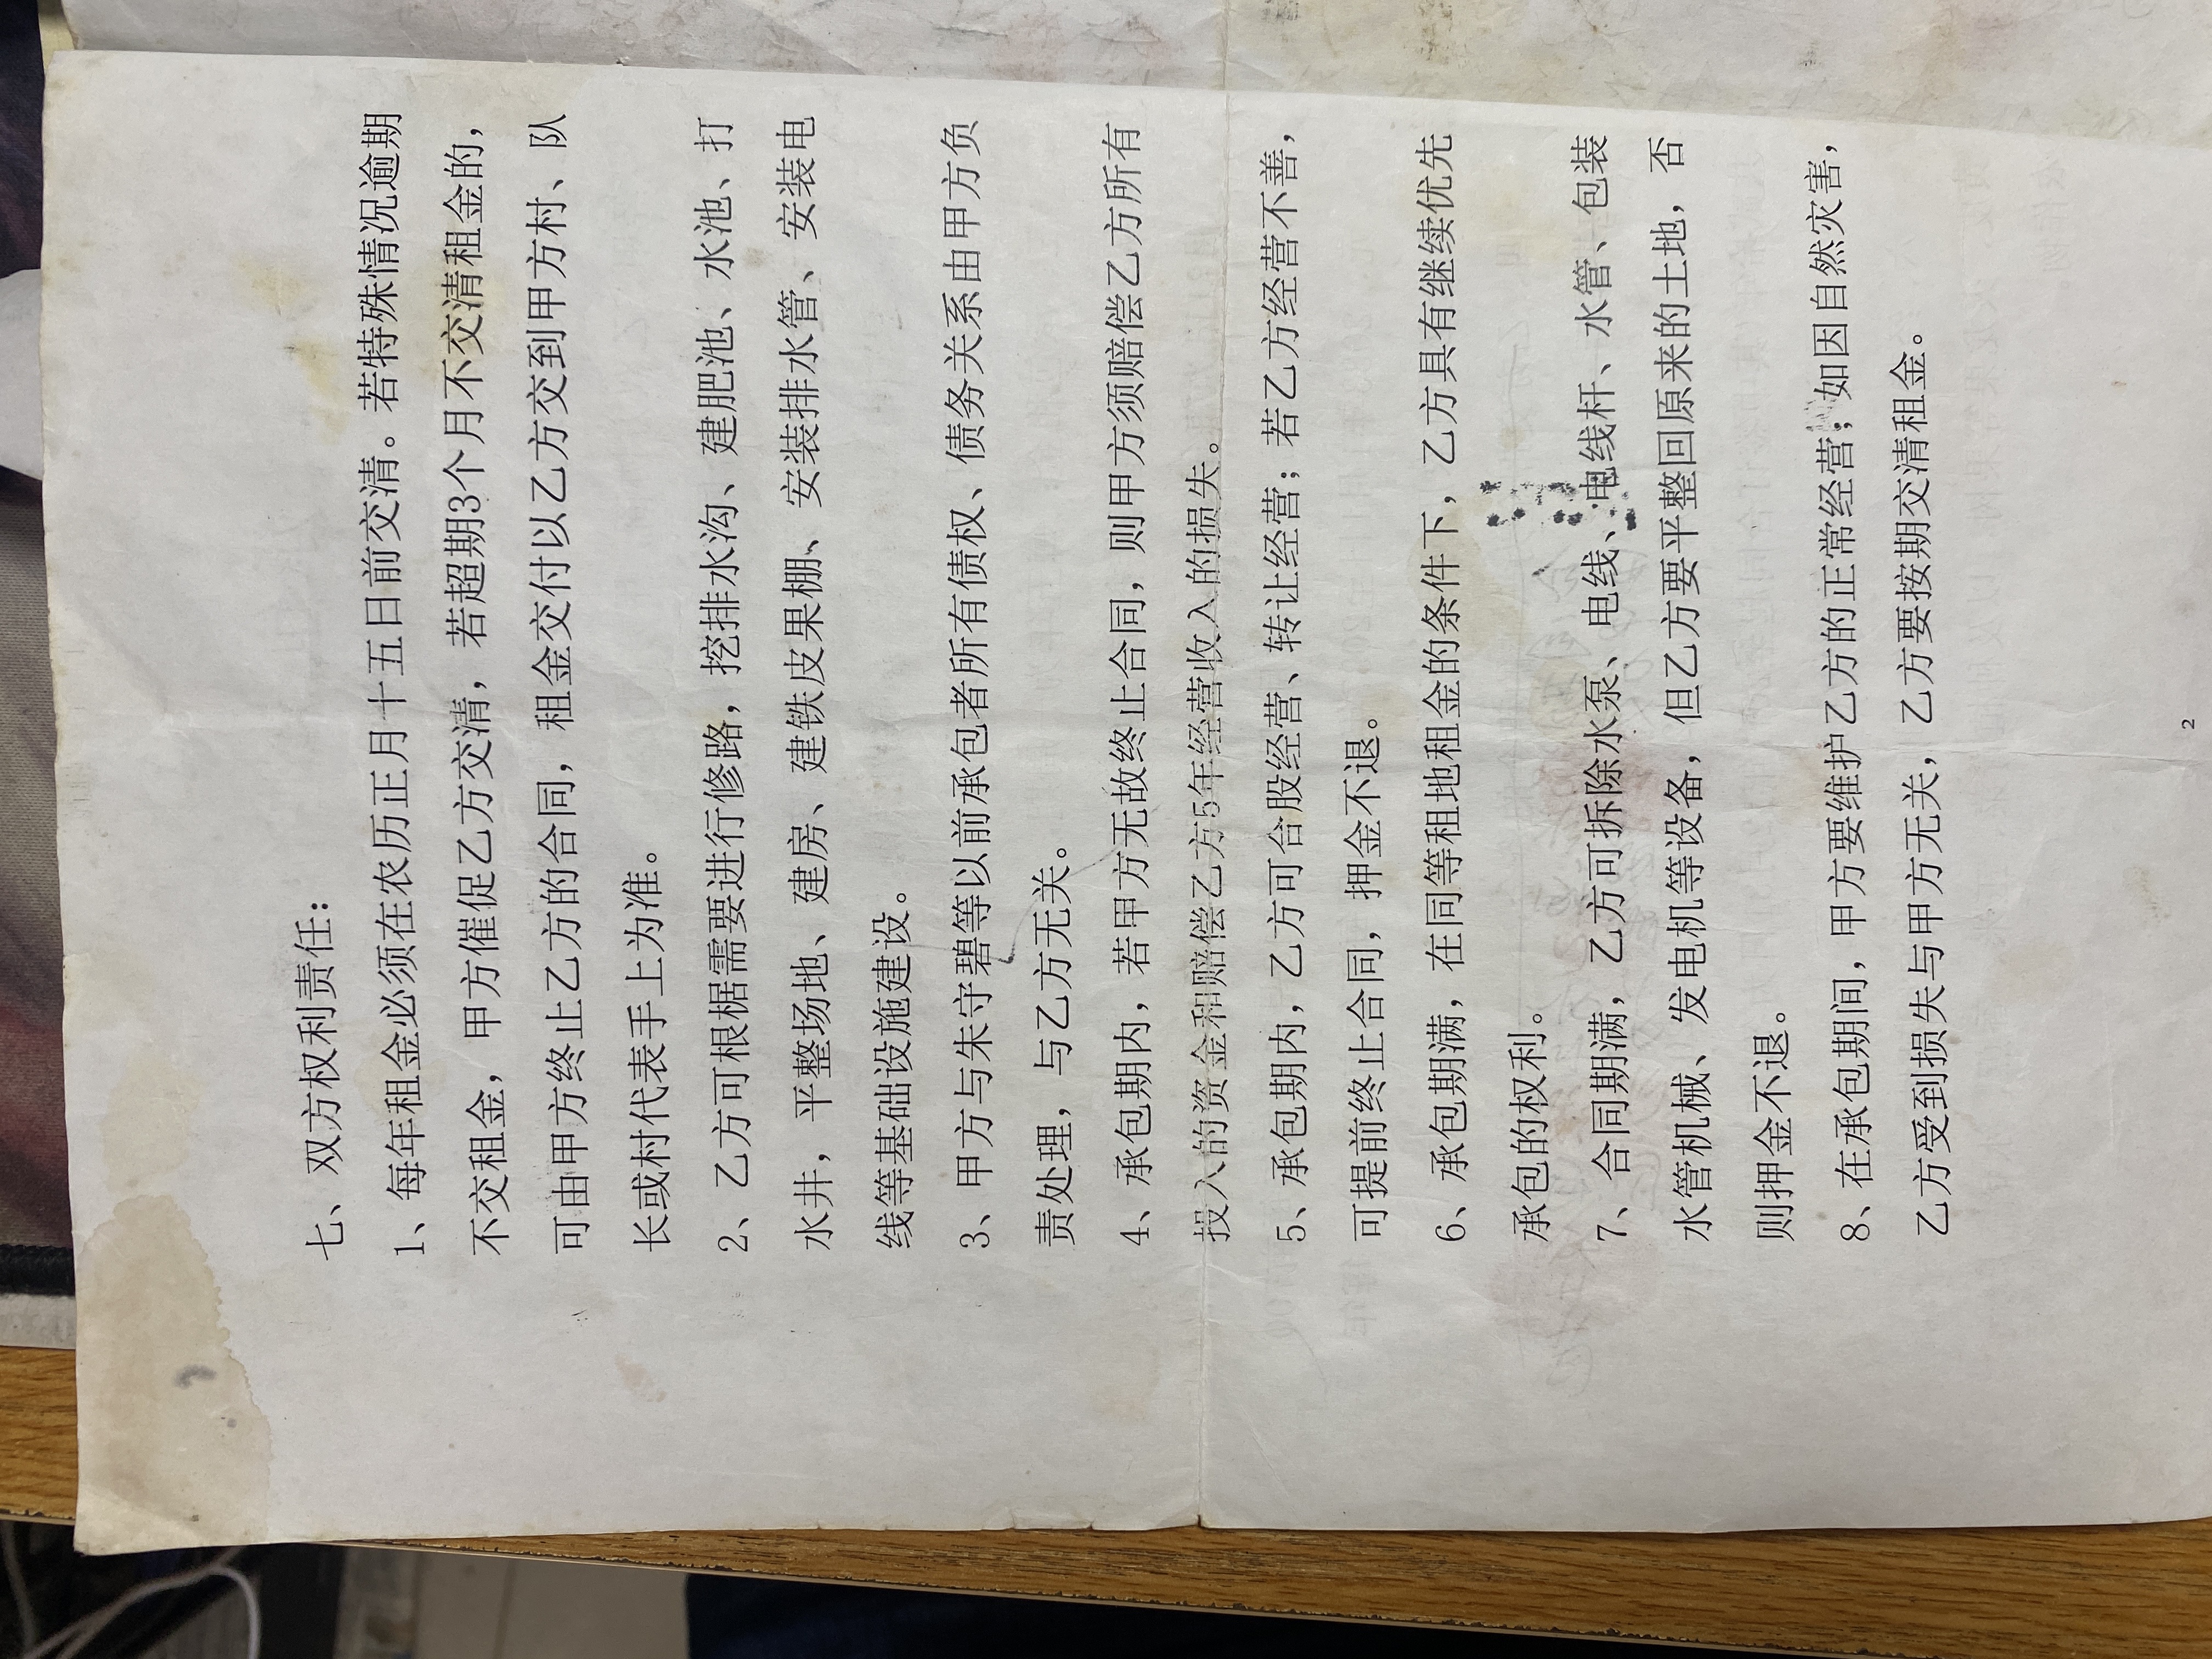 七、双方权利责任：
1、每年租金必须在农历正月十五日前交清。若特殊情况逾期
不交租金，甲方催促乙方交清，若超期3个月不交清租金的，
可由甲方终止乙方的合同，租金交付以乙方交到甲方村、队
长或村代表手上为准。
2、乙方可根椐需要进行修路，挖排水沟、建肥池、水池、打
水井，平整场地、建房、建铁皮果棚、安装排水管、安装电
线等基础设施建设。
3、甲方与朱守碧等以前承包者所有债权、债务关系由甲方负
责处理，与乙方无关。
4、承包期内，若甲方无故终止合同，则甲方须赔偿乙方所有
投入的资金和赔偿乙方5年经营收入的损失。
5、承包期内，乙方可合股经营、转让经营；若乙方经营不善，
可提前终止合同，押金不退。
6、承包期满，在同等租地租金的条件下，乙方具有继续优先
承包的权利。
7、合同期满，乙方可拆除水泵、电线、电线杆、水管、包装
水管机械、发电机等设备，但乙方要平整回原来的土地，否
则押金不退。
8、在承包期间，甲方要维护乙方的正常经营；如因自然灾害，
乙方受到损失与甲方无关，乙方要按期交清租金。
2